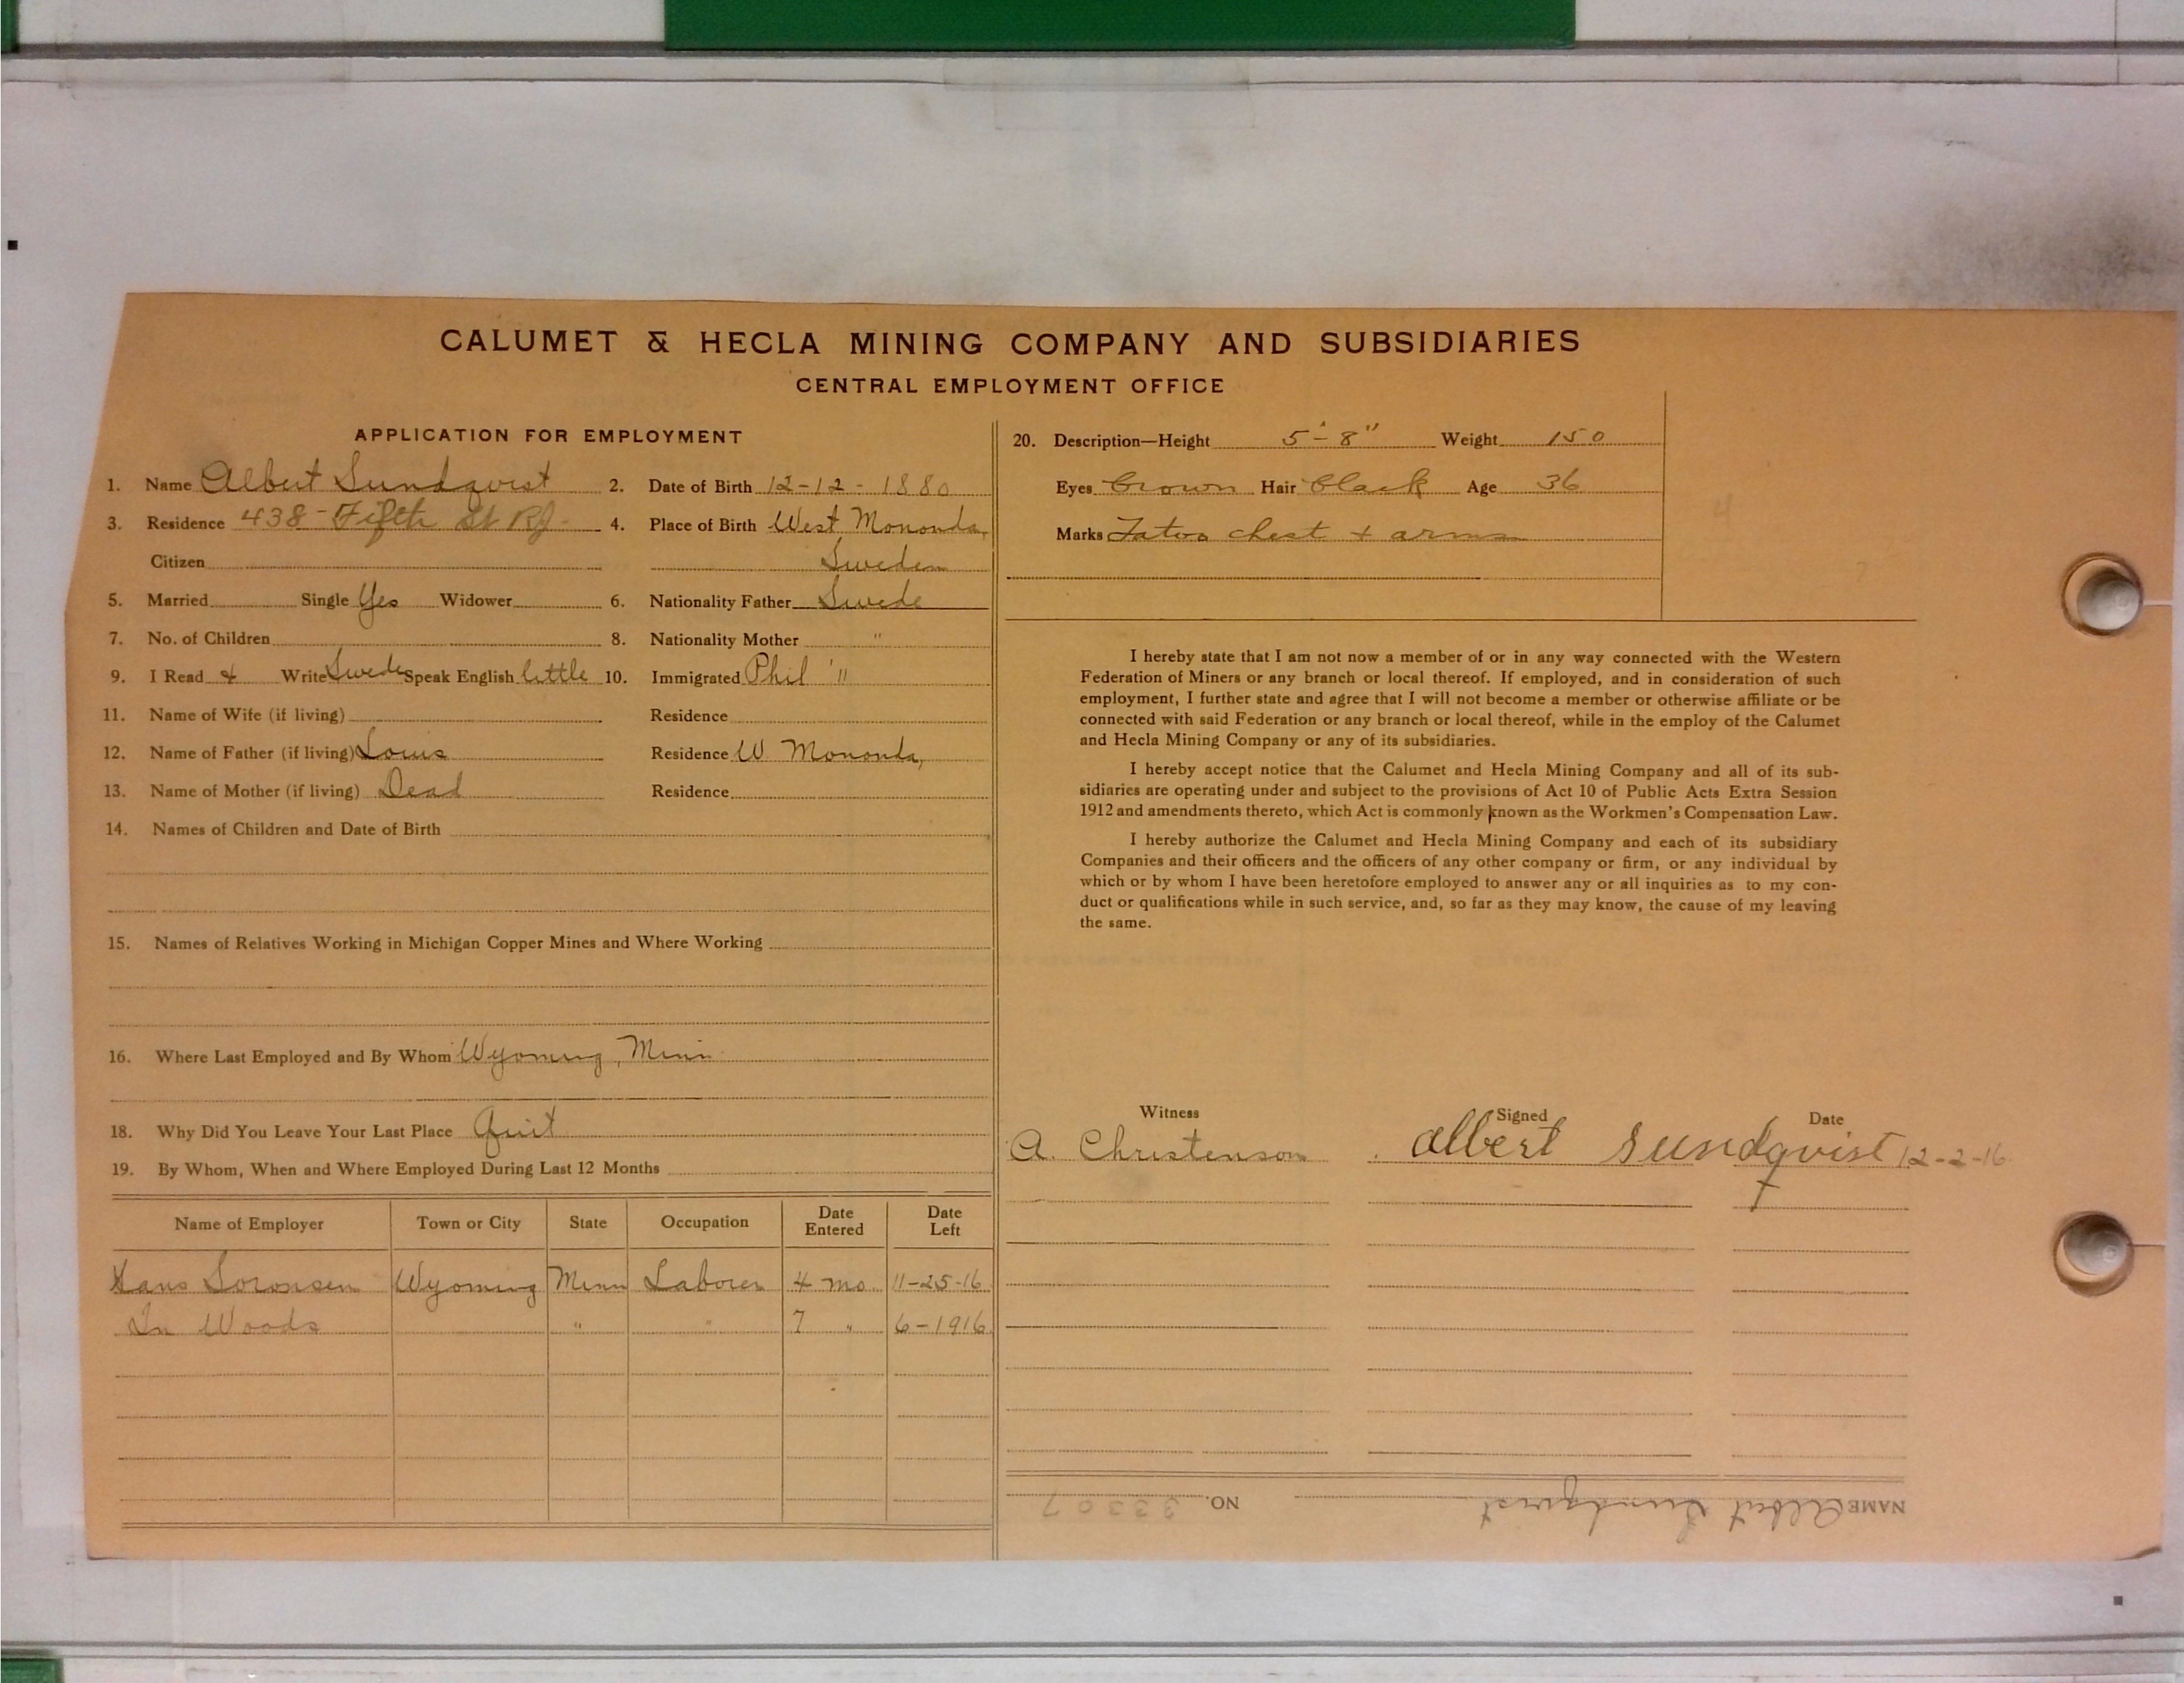 CALUMET & HECLA MINING COMPANY AND SUBSIDIARIES
CENTRAL EMPLOYMENT OFFICE
APPLICATION FOR EMPLOYMENT
1. Name Albert Sundqvist 2. Date of Birth 12-12-1880
3. Residence 438-Fifth St RJ. 4. Place of Birth West Mononda,
Citizen Sweden
5. Married Single Yes Widower 6. Nationality Father Swede
7. No. of Children 8. Nationality Mother "
9. I Read & Write Swede Speak English little 10. Immigrated Phil '11
11. Name of Wife (if living) Residence
12. Name of Father (if living) Louis Residence W Mononda,
13. Name of Mother (if living) Dead Residence
14. Names of Children and Date of Birth
15. Names of Relatives Working in Michigan Copper Mines and Where Working
16. Where Last Employed and By Whom Wyoming, Minn
18. Why Did You Leave Your Last Place Quit
19. By Whom, When and Where Employed During Last 12 Months
Name of Employer Town or City State Occupation Date Entered Date Left
Hans Soronsen Wyoming Minn Laborer 4 mo. 11-25-16
In Woods " " 7 " 6-1916
20. Description—Height 5'-8" Weight 150
Eyes brown Hair black Age 36
Marks Tatoo chest + arms
I hereby state that I am not now a member of or in any way connected with the Western
Federation of Miners or any branch or local thereof. If employed, and in consideration of such
employment, I further state and agree that I will not become a member or otherwise affiliate or be
connected with said Federation or any branch or local thereof, while in the employ of the Calumet
and Hecla Mining Company or any of its subsidiaries.
I hereby accept notice that the Calumet and Hecla Mining Company and all of its sub-
sidiaries are operating under and subject to the provisions of Act 10 of Public Acts Extra Session
1912 and amendments thereto, which Act is commonly known as the Workmen's Compensation Law.
I hereby authorize the Calumet and Hecla Mining Company and each of its subsidiary
Companies and their officers and the officers of any other company or firm, or any individual by
which or by whom I have been heretofore employed to answer any or all inquiries as to my con-
duct or qualifications while in such service, and, so far as they may know, the cause of my leaving
the same.
Witness Signed Date
A. Christenson albert sundqvist 12-2-16
NAME Albert Sundqvist NO. 33307